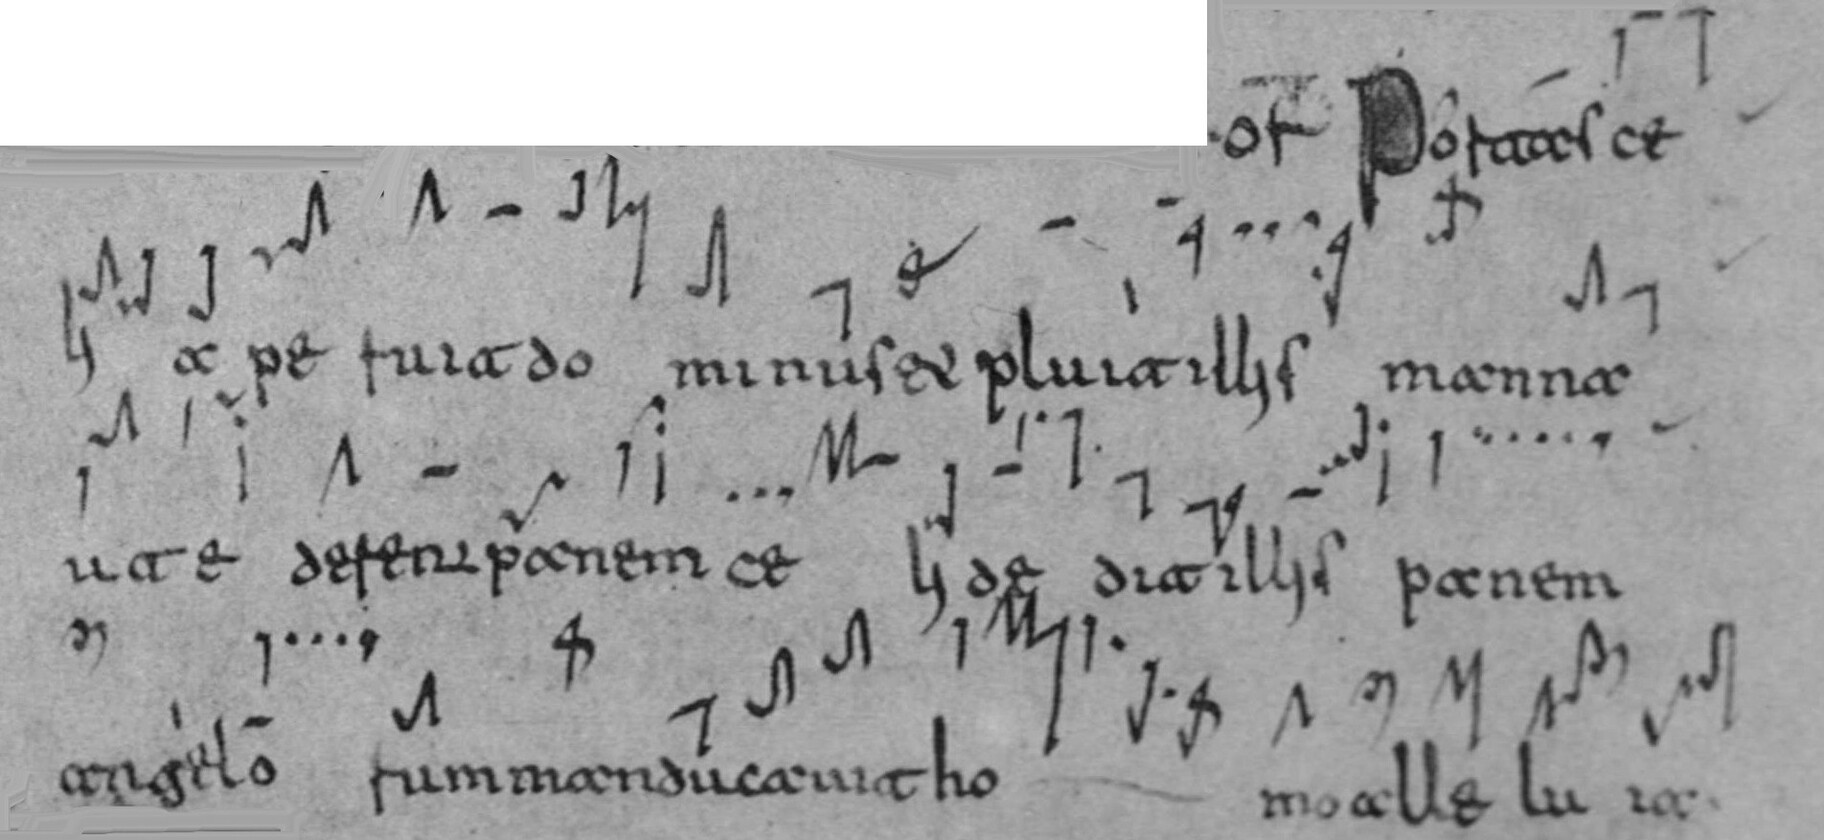 of Portas ce
li a pe ruit do minus et pluit illis manna
ut e derent panem ce li de dit illis panem
angelo rum manducauit ho mo alle lu ia